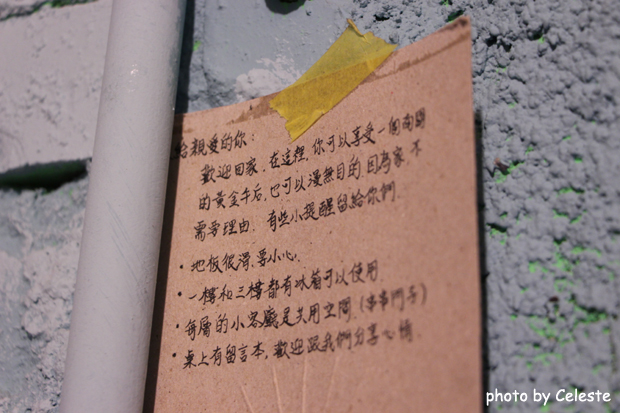 給親愛的你:
歡迎回家. 在這裡, 你可以享受一個南開
的黃金午后, 也可以漫無目的. 因為家, 不
需要理由. 有些小提醒留給你們.
• 地板很滑, 要小心.
• 一樓和三樓都有冰箱可以使用.
• 每層的小客廳是共用空間. (串串門子)
• 桌上有留言本, 歡迎跟我們分享心情.
photo by Celeste